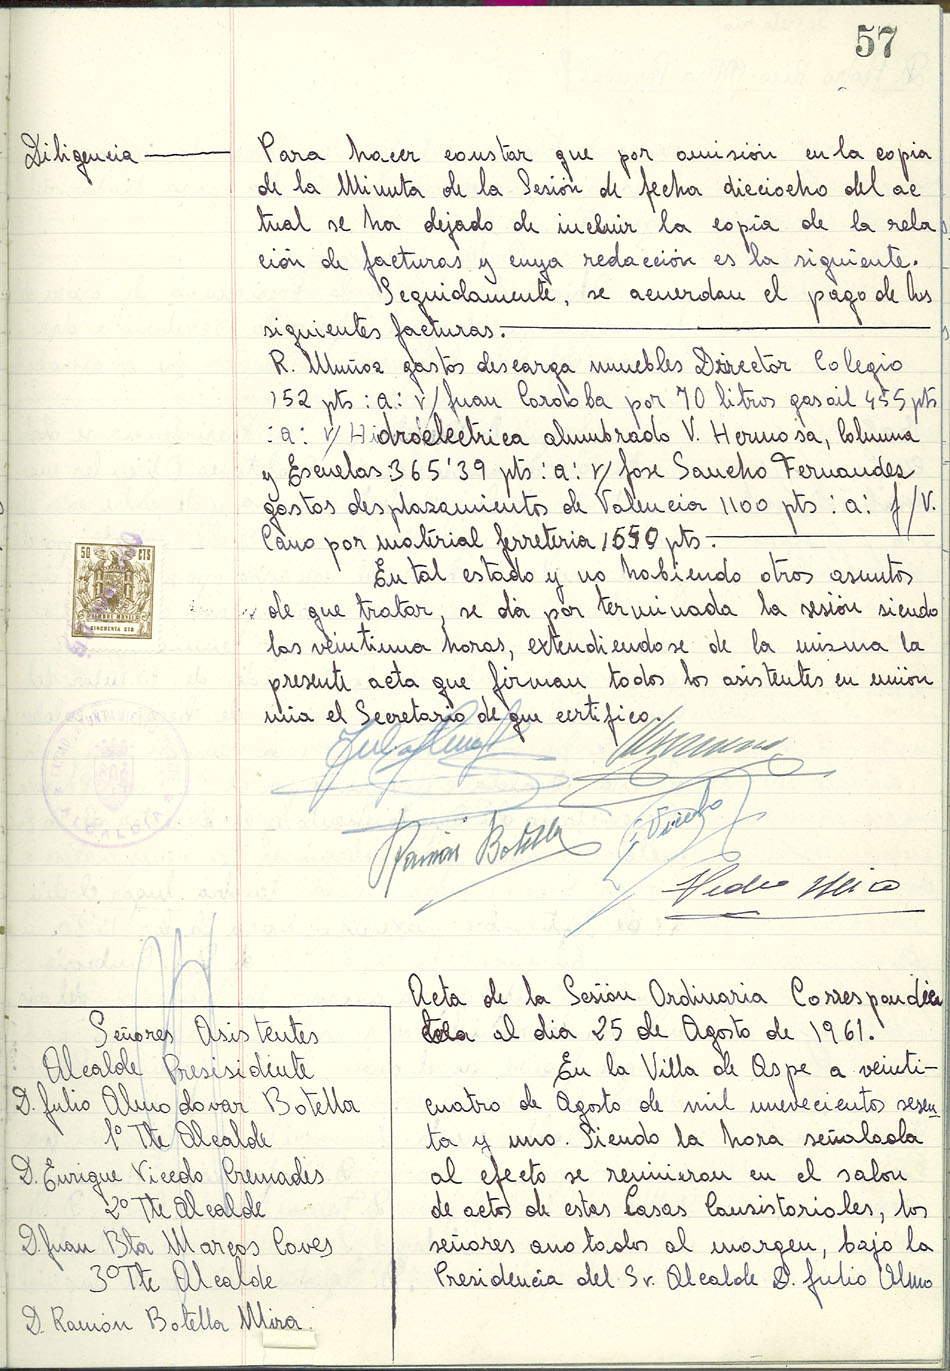 57
Diligencia
Para hacer constar que por omisión en la copia
de la Minuta de la Sesión de fecha dieciocho del ac
tual se ha dejado de incluir la copia de la rela
ción de facturas y cuya redacción es la siguiente.
Seguidamente, se acuerdan el pago de los
siguientes facturas.
R. Muñoz gastos descarga muebles Director Colegio
152 pts :a: v/ Juan Cordoba por 70 litros gasoil 455 pts
:a: v/ Hidroelectrica alumbrado V. Hermosa, Columna
y Escuelas 365'39 pts :a: v/ Jose Sancho Fernandez
gastos desplazamientos de Valencia 1100 pts :a: f/ V.
Cano por material ferreteria 1550 pts.
En tal estado y no habiendo otros asuntos
de que tratar, se dá por terminada la sesión siendo
las veintiuna horas, extendiendose de la misma la
presente acta que firman todos los asistentes en unión
mia el Secretario de que certifico.
50 CTS
TIMBRE MOVIL
CINCUENTA CTS
Ramón Botella
E. Vicedo
Pedro Mira
Señores Asistentes
Alcalde Presisidente
D. Julio Almodovar Botella
1º Tte Alcalde
D. Enrique Vicedo Cremades
2º Tte Alcalde
D. Juan Bta Marcos Caves
3º Tte Alcalde
D. Ramón Botella Mira.
Acta de la Sesión Ordinaria Correspondien
al dia 25 de Agosto de 1961.
En la Villa de Aspe a veinti-
cuatro de Agosto de mil nuevecientos sesen-
ta y uno. Siendo la hora señalada
al efecto se reunieron en el salon
de actos de estas Casas Consistoriales, los
señores anotados al margen, bajo la
Presidencia del Sr. Alcalde D. Julio Almo